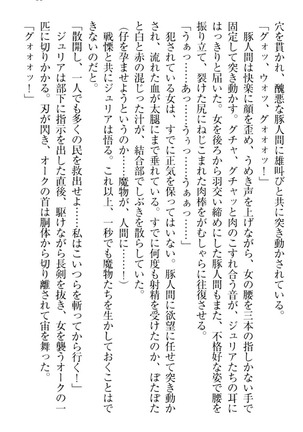 穴を貫かれ、醜悪な豚人間に雄叫びと共に突き動かされている。
「グォッ、ウォッ、グォオォッ！」
　豚人間は快楽に顔を歪め、うめき声を上げながら、女の腰を三本の指しかない手で
固定して突き動かす。グチャ、グチャッと肉のこすれ合う音が、ジュリアたちの耳に
はっきりと届いた。女を後ろから羽交い締めにした豚人間もまた、不格好な姿で腰を
振り立て、裂けた尻にねじこまれた肉棒をがむしゃらに往復させる。
「うぁっ……あっ……うぅっ……うぁぁっ……」
　犯されている女は、すでに正気を保ってはいない。豚人間に欲望に任せて突き動か
され、流れた血が太腿にまで垂れている。すでに何度も射精を受けたのか、ぼたぼた
と白と赤の混じった汁が、結合部でしぶきを散らしていた。
（仔を孕ませようというのか……魔物が、人間に……！）
　戦慄と共にジュリアは悟る。これ以上、一秒でも魔物たちを生かしておくことはで
きないのだと。
「散開し、一人でも多くの民を救出せよ……私はこいつらを斬ってから行く！」
　ジュリアは部下に指示を出した直後、駆けながら長剣を抜き、女を襲うオークの一
匹に切りかかる。刃が閃き、オークの首は胴体から切り離されて宙を舞った。
「グォオォッ！」